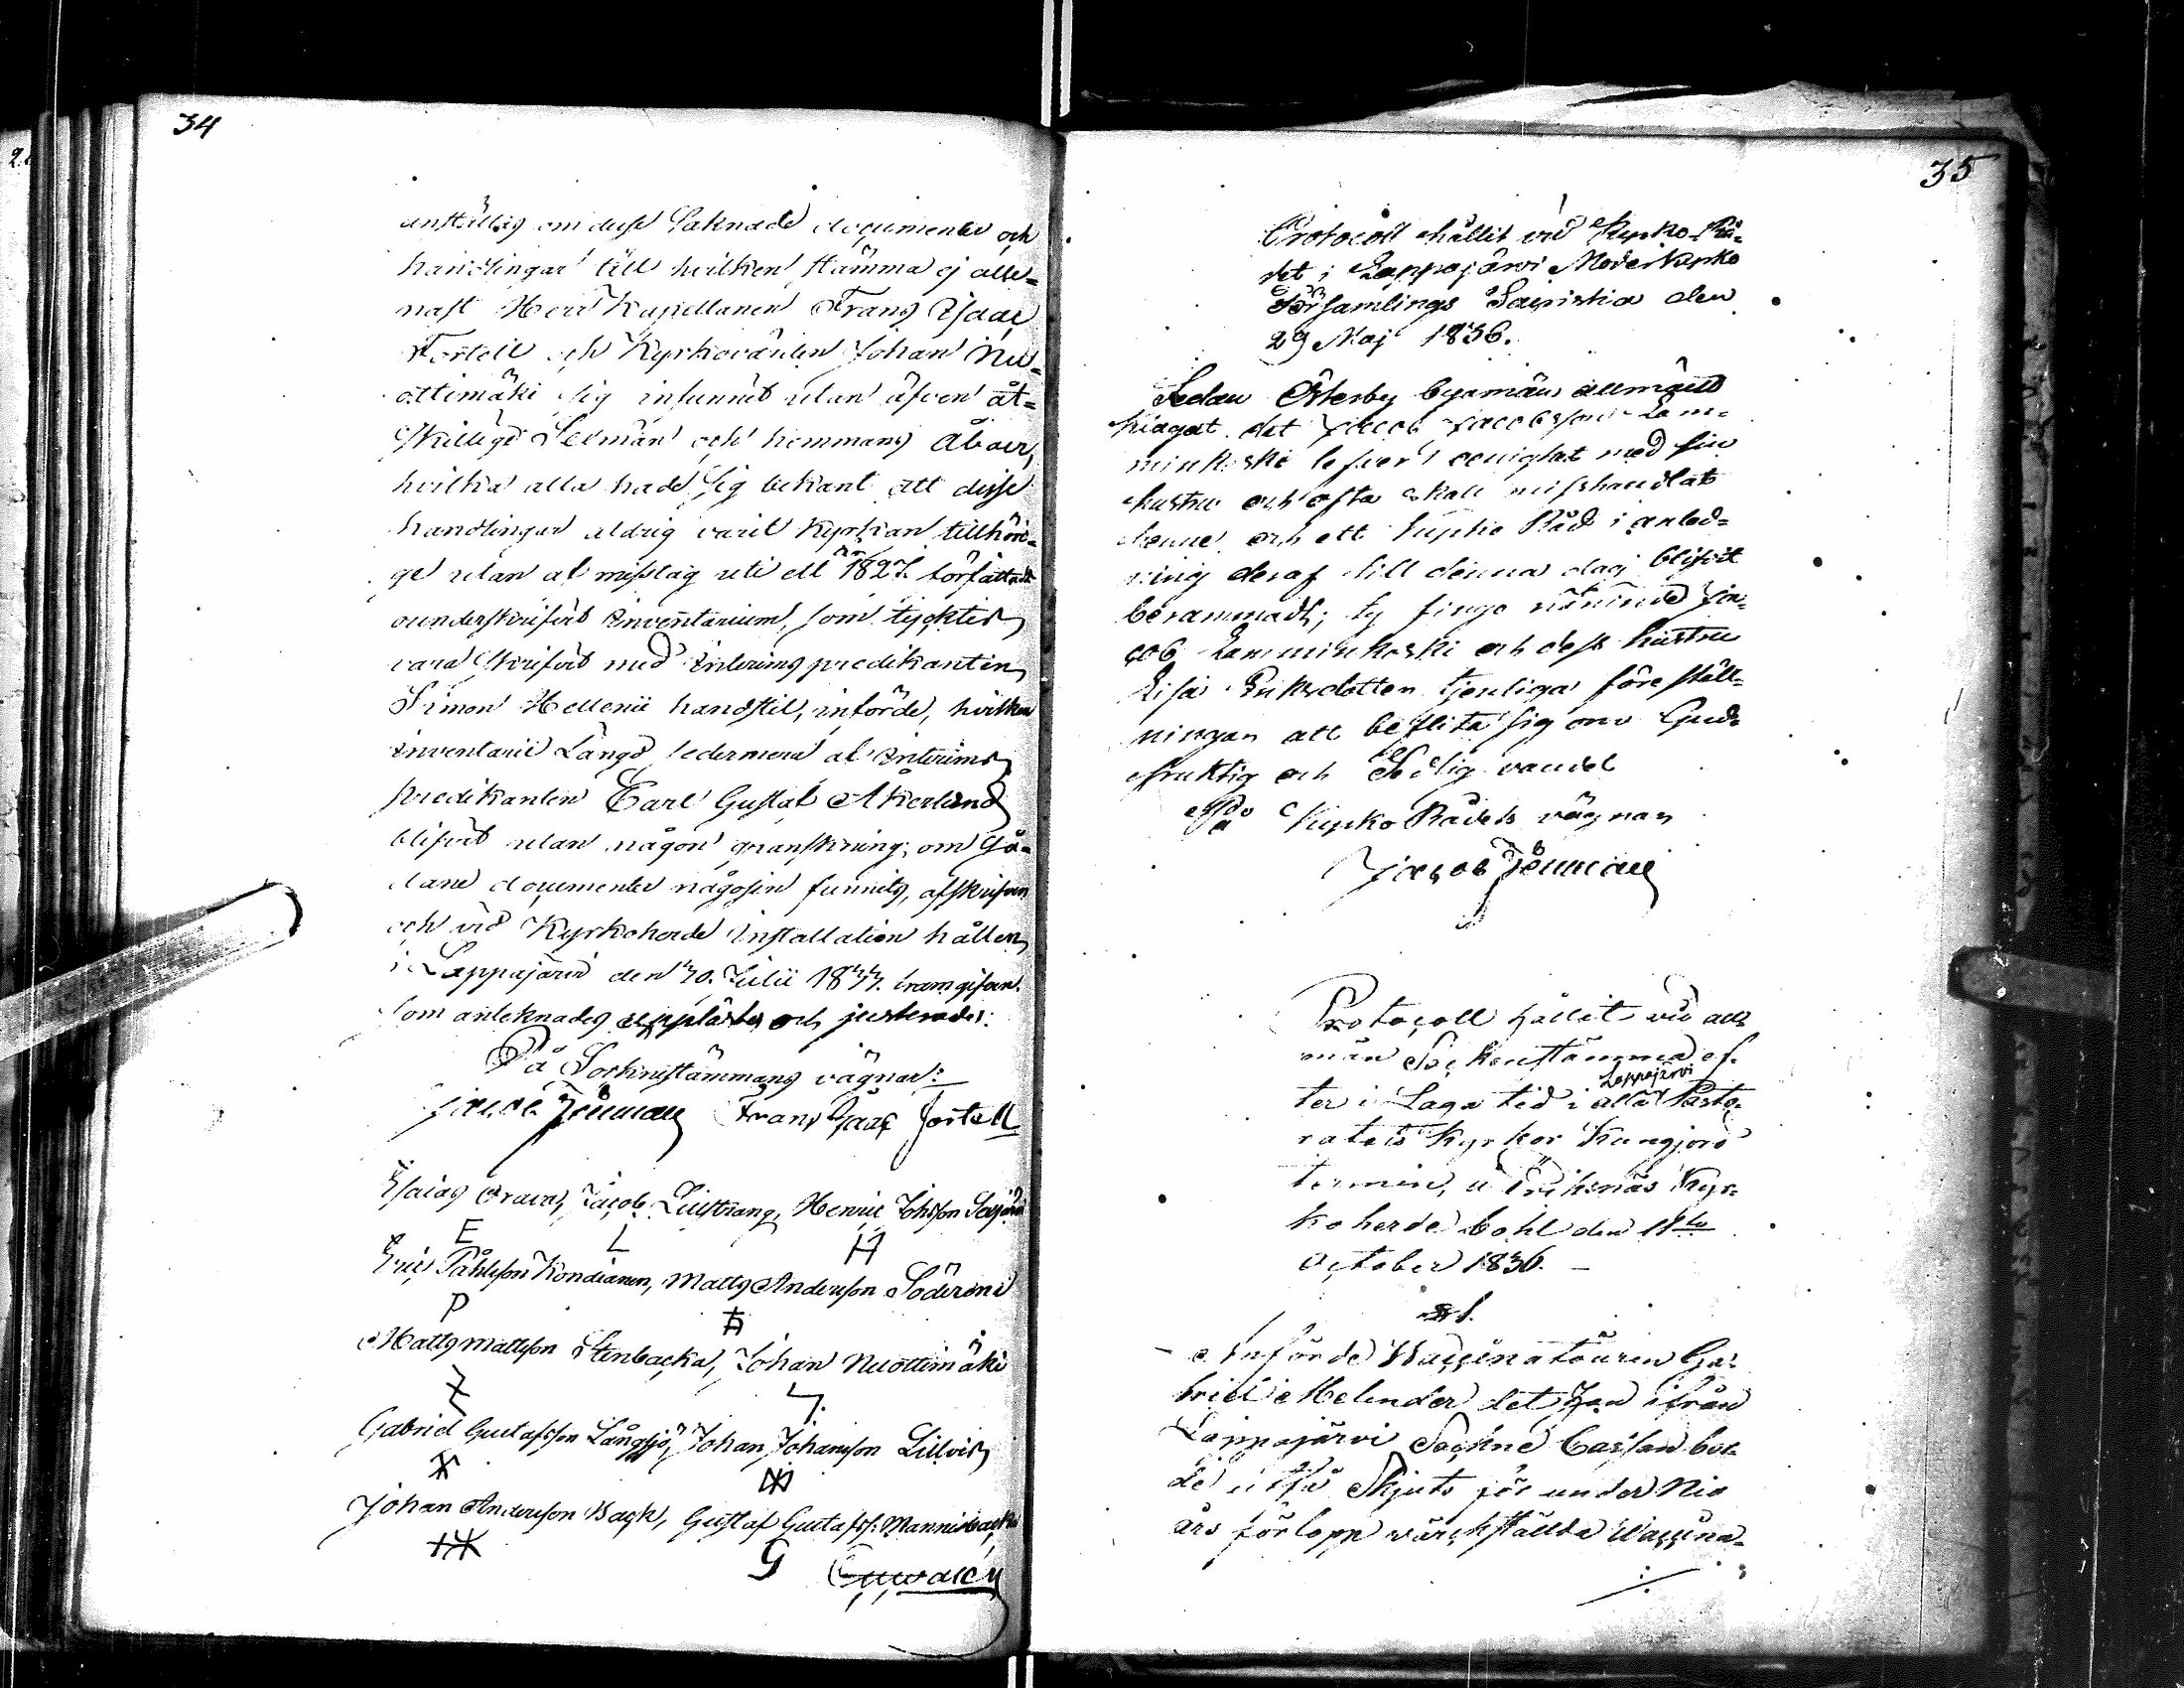 34
anställes om desse saknade documenter och
handlingar till hvilken stämma ej alle-
nast Herr Kapellanen Frans Isaac
Fortell och Kyrkovärden Johan Nu-
ottimäki sig infunnit utan äfven åt-
skillige Sexmän och hemmans Åboer,
hvilka alla hade sig bekant att desse
handlingar aldrig varit Kyrkan tillhöri-
ge utan af misstag uti ett år 1827 författadt
ounderskrifvit Inventarium, som tycktes
vara skrifvit med Interims predikanten
Simon Hellenii handstil, införde, hvilken
Inventarii Längd sedermera af Interims
predikanten Carl Gustaf Åkerlund
blifvit utan någon granskning, om så-
dane documenter någosin funnits, afskrifven
och vid Kyrkoherde Installation hållen
i Lappajärvi den 30. Julii 1833. framgifven.
Som anteknades upplästes och justerades.
På Socknestämmans vägnar:
Jacob Fortell Frans Isaac Fortell
Esaias Orava, Jacob Lillstrang, Henric Johsson Savjärvi
E L H
Eric Påhlsson Kondianen, Matts Andersson Söderena
P
Matts Mattsson Stenbacka, Johan Nuottimäki
Gabriel Gustafsson Långsjö, Johan Johansson Lillvis
Johan Andersson Back, Gustaf Gustafss: Mannisbacka
G
35
Protocoll hållit vid Kyrko Rå-
det i Lappajärvi Moderkyrko
Församlings Sacristia den
29 Maj 1836.
Sedan Österby byamän allmänt
klagat det Jacob Jacobsson Lam-
minkoski lefver i oenighet med sin
hustru och ofta skall misshandlat
henne och ett Kyrko Råd i anled-
ning deraf till denna dag blifvit
berammadt; ty fingo nämnde Ja-
cob Lamminkoski och dess hustru
Lisa Eriksdotter tjenliga föreställ-
ningar att beflita sig om Gud-
fruktig och Sedlig vandel
På Kyrko Rådets vägnar
Protocoll hållit vid all-
män Sockenstämma ef-
ter i Laga tid i alla Lappajärvi Pasto-
ratets Kyrkor Kungjord
termin, å Eriksnäs Kyr-
koherde bohl den 11te
October 1836.
§ 1.
Anförde Vaccinateuren Ga-
briel Melender det han ifrån
Lappajärvi Sockne Cassan bor-
de utfå Skjuts för under Nio
års förlopp värckställda Vaccina-